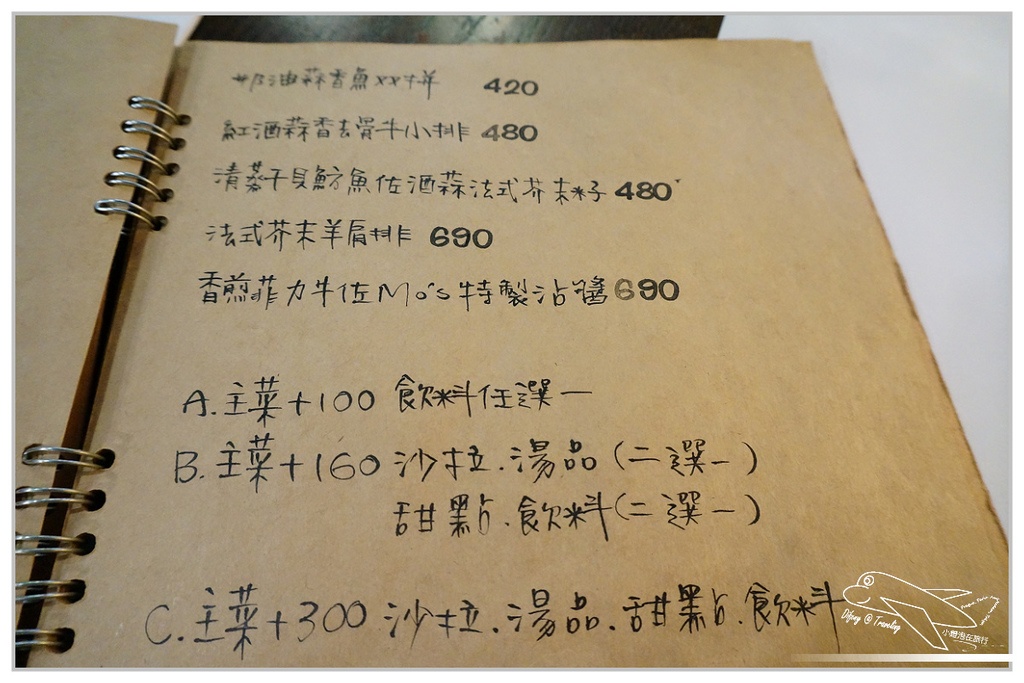 奶油蒜香魚XX拼 420
紅酒蒜香去骨牛小排 480
清蒸干貝魴魚佐酒蒜法式芥末籽 480
法式芥末羊肩排 690
香煎菲力牛佐Mo's特製沾醬 690
A.主菜+100 飲料任選一
B.主菜+160 沙拉.湯品(二選一)
甜點.飲料(二選一)
C.主菜+300 沙拉.湯品.甜點.飲料
@ Traveling
小鰻泡在旅行